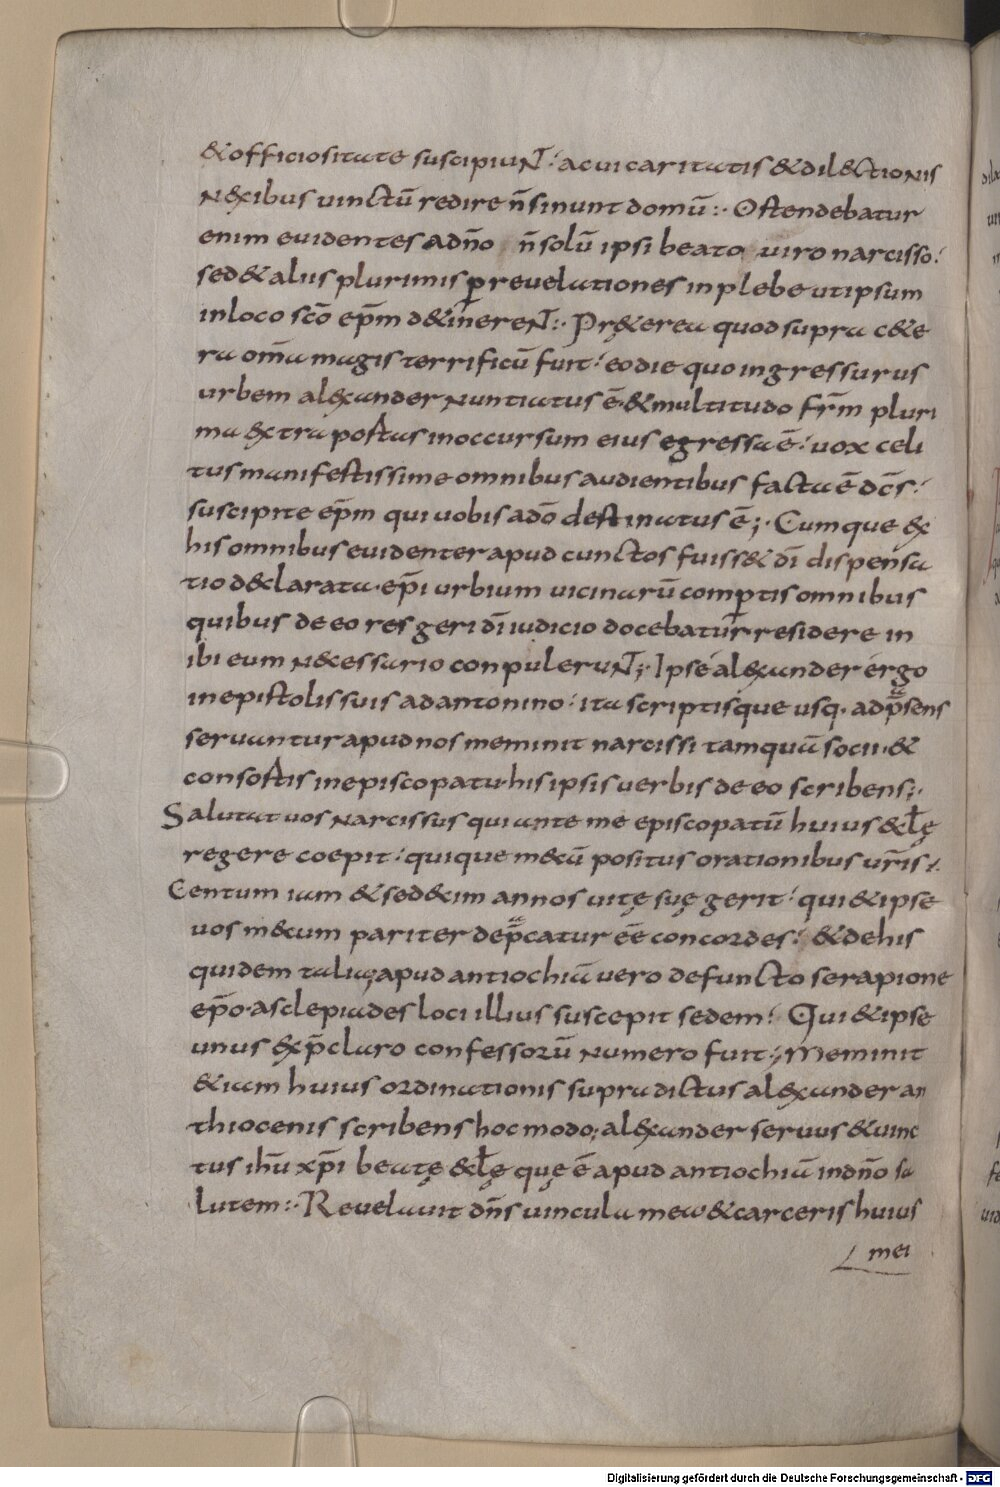 & officiositate suscipiunt. ac ui caritatis & dilectionis
n&xibus uinctū redire n̄ sinunt domū. Ostendebatur
enim euidentes ad n̄o n̄ solū ipsi beato uiro narcisso.
sed & aliis plurimis ꝑ reuelationes in plebe ut ipsum
in loco sc̄o ep̄m d&inerent. Pr&erea quod supra c&e
ra om̄a magis terrificū fuit. eo die quo ingressurus
urbem al&xander nuntiatus ē. & multitudo fr̄m pluri
ma &xtra portas in occursum eius egressa ē. uox celi
tus manifestissime omnibus audientibus facta ē dc̄s.
suscipite ep̄m qui uobis a dō destinatus ē;. Cumque &x
his omnibus euidenter apud cunctos fuiss& dī dispensa
tio d&clarata. ep̄i urbium uicinarū comꝑtis omnibus
quibus de eo res geri dī iudicio docebatur. residere in
ibi eum n&cessario conpulerunt;. Ipse al&xander ergo
in epistolis suis ad antonino. ita scriptis que usq. ad p̄sens
seruantur apud nos meminit narcissi tamquā socii. &
consortis in episcopatu. his ipsis uerbis de eo scribens;.
Salutat uos narcissus qui ante me episcopatū huius &cl̄ę
regere coepit. quique m&cū positus orationibus ur̄is.
Centum iam & sed&im annos uitę suę gerit. qui & ipse
uos m&cum pariter dep̄catur eē concordes. & de his
quidem talia; apud antiochiā uero defuncto serapione
ep̄o. asclepiades loci illius suscepit sedem. Qui & ipse
unus &x p̄claro confessorū numero fuit;. Meminit
&iam huius ordinationis supradictus al&xander an
thiocenis scribens hoc modo; al&xander seruus & uinc
tus ih̄u xp̄i beatę &cl̄ę quę ē apud antiochiā in dn̄o sa
lutem. Reuelauit dn̄s uincula mea & carceris huius
mei
Digitalisierung gefördert durch die Deutsche Forschungsgemeinschaft - DFG